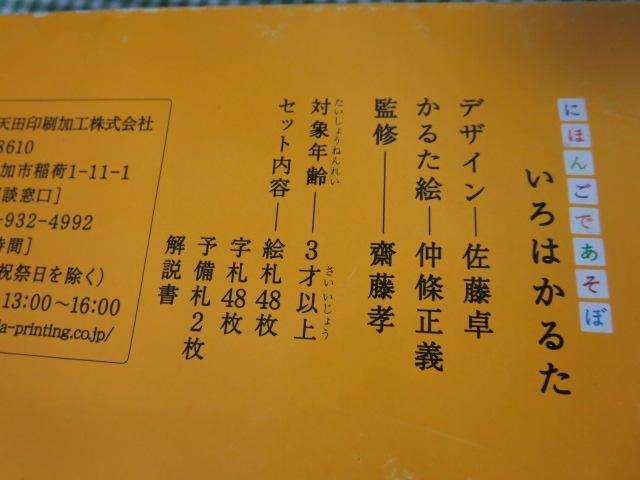 にほんごであそぼ
いろはかるた
デザイン―佐藤卓
かるた絵―仲條正義
監修――齋藤孝
対象年齢―3才以上
たいしょうねんれい
さいいじょう
セット内容―絵札48枚
字札48枚
予備札2枚
解説書
天田印刷加工株式会社
8610
加市稲荷1-11-1
談窓口]
-932-4992
時間]
祝祭日を除く)
13:00～16:00
a-printing.co.jp/